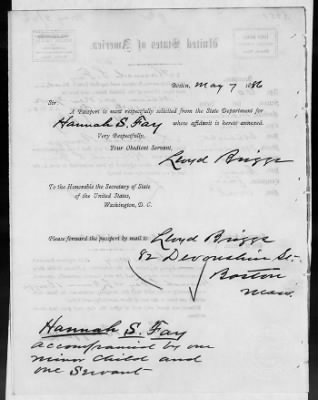 United States of America.
Boston, May 7 1886
Sir:
A Passport is most respectfully solicited from the State Department for
Hannah S. Fay whose affidavit is hereto annexed.
Very Respectfully,
Your Obedient Servant,
Lloyd Briggs
To the Honorable the Secretary of State
of the United States,
Washington, D. C.
Please forward the passport by mail to Lloyd Briggs
82 Devonshire St.
Boston
Mass.
Hannah S. Fay
accompanied by one
minor child and
one servant